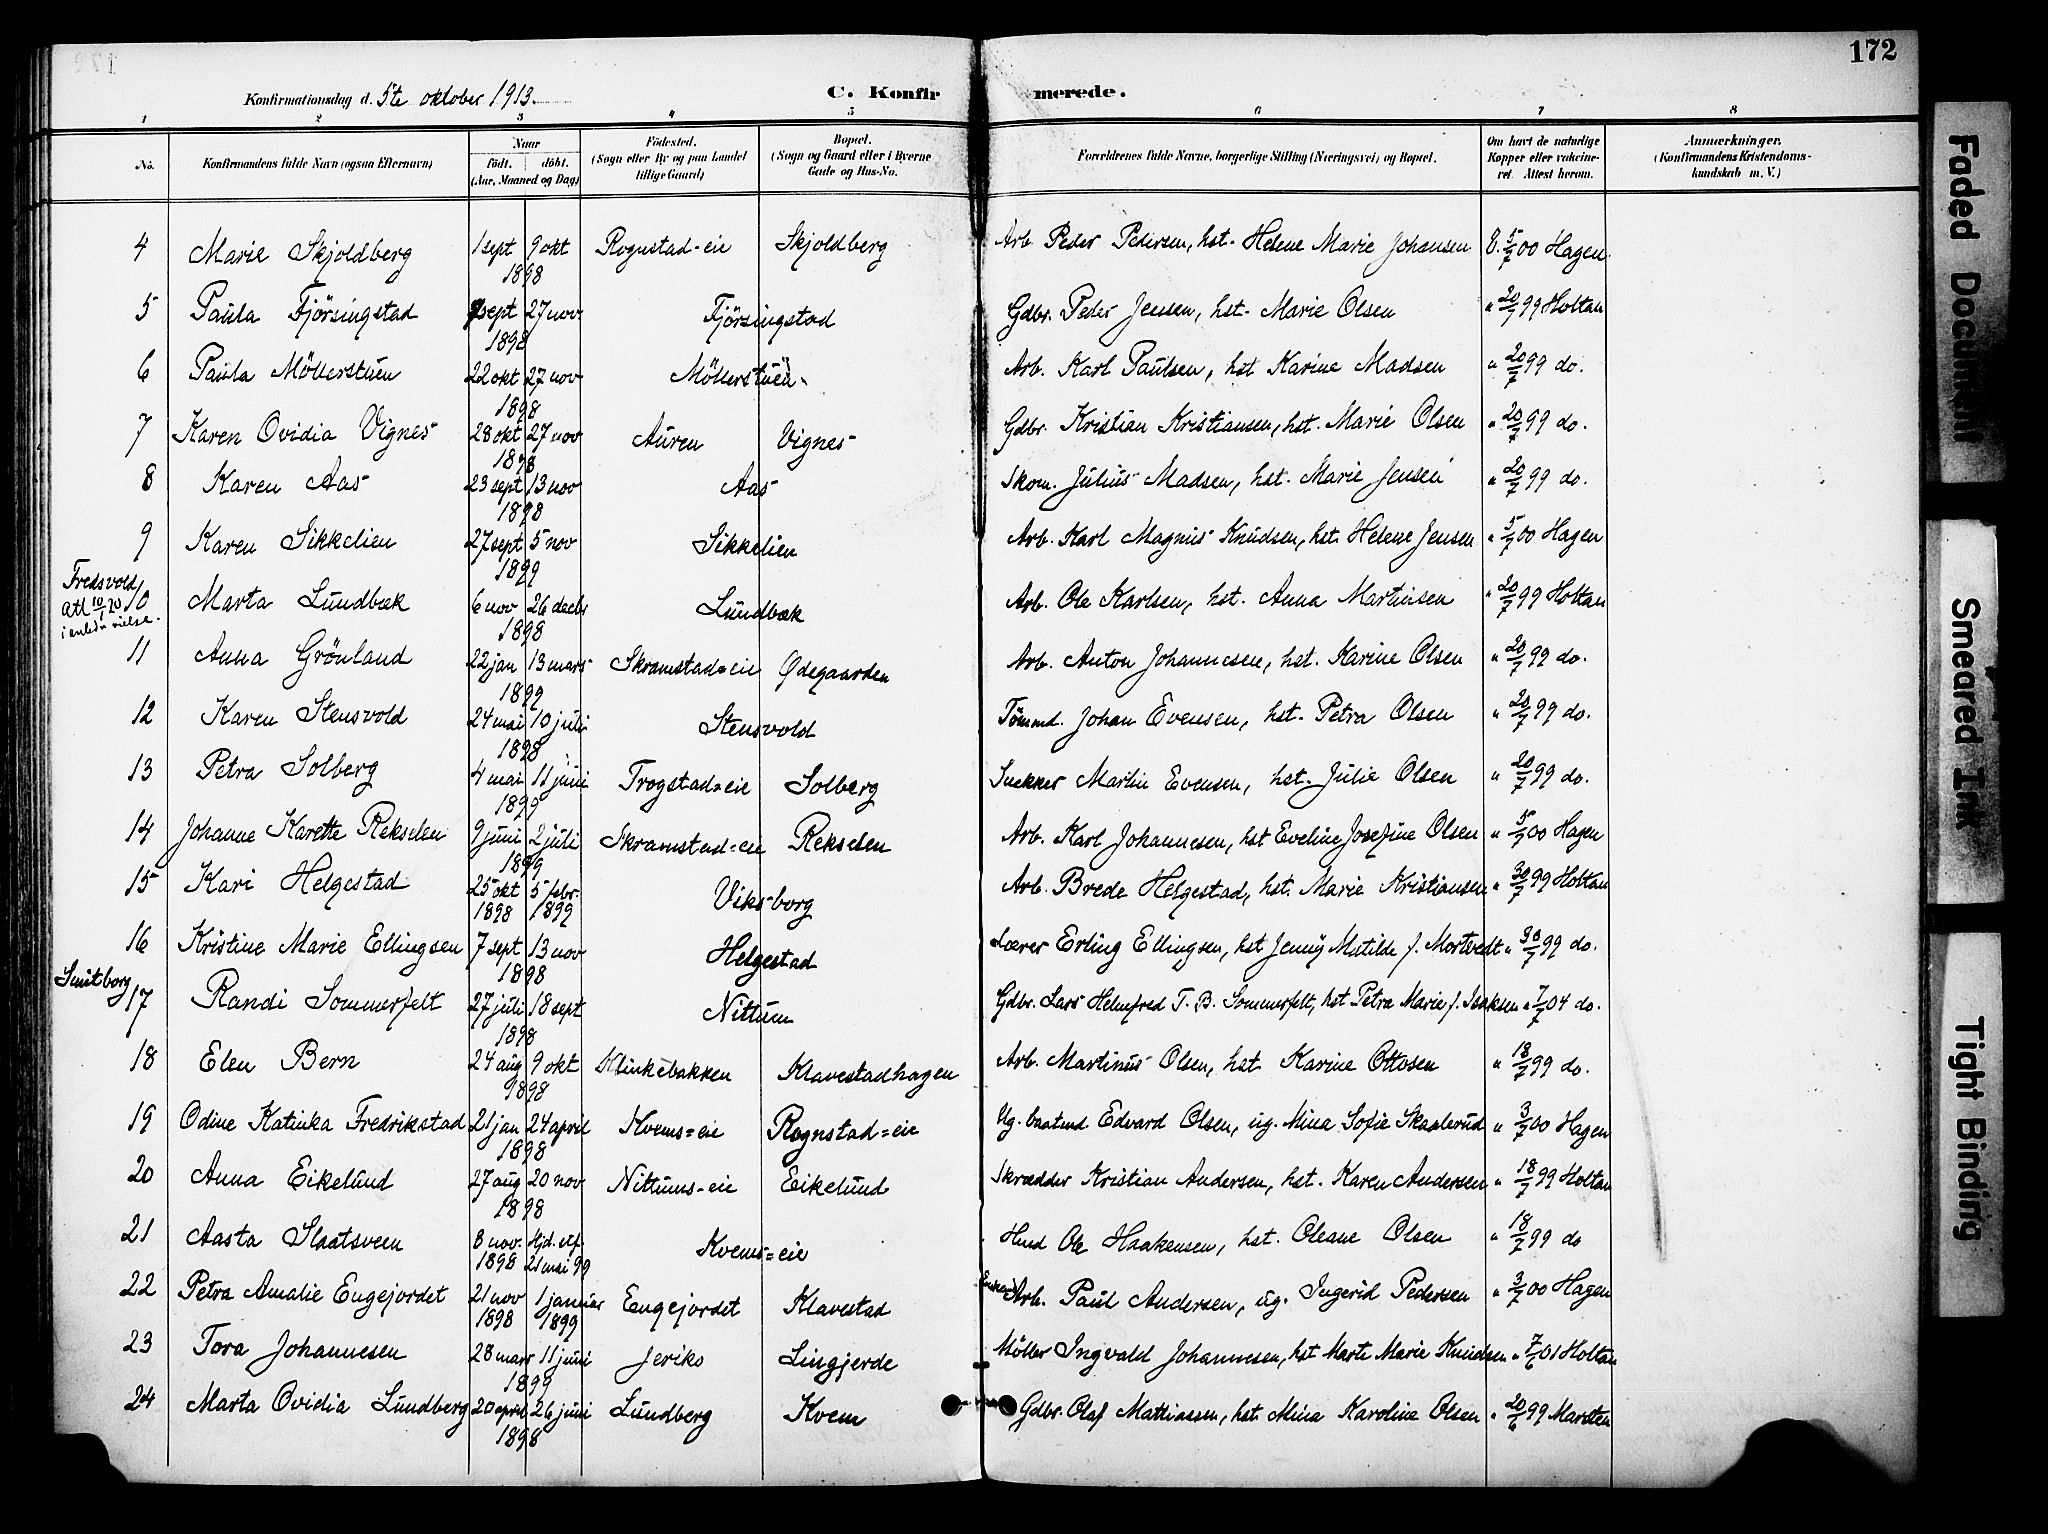 172
Konfirmationsdag d. 5te oktober 1913.
C. Konfirmerede.
1 2 3 4 5 6 7 8
No.
Konfirmandens fulde Navn (ogsaa Efternavn)
Naar
födt. döbt.
(Aar, Maaned og Dag)
Födested.
(Sogn eller By og paa Landet
tillige Gaard)
Bopæl.
(Sogn og Gaard eller i Byerne
Gade og Hus-No.
Forældrenes fulde Navne, borgerlige Stilling (Næringsvei) og Bopæl.
Om havt de naturlige
Kopper eller vaksine-
ret. Attest herom.
Anmærkninger.
(Konfirmandens Kristendoms-
kundskab m. V.)
4 Marie Skjoldberg 1 sept 9 okt 1898 Rognstad-eie Skjoldberg Arb. Peder Pedersen, hst. Helene Marie Johansen 8. 5/7 00 Hagen.
5 Paula Fjörsingstad sept 27 nov 1898 Fjörsingstad Gdbr. Peder Jensen, hst. Marie Olsen " 20/7 99 Holtan
6 Paula Möllerstuen 22 okt 27 nov 1898 Möllerstuen Arb. Karl Paulsen, hst Karine Madsen " 20/7 99 do.
7 Karen Ovidia Vignes 28 okt 27 nov 1898 Auren Vignes Gdbr. Kristian Kristiansen, hst. Marie Olsen " 20/7 99 do.
8 Karen Aas 23 sept 13 nov 1898 Aas Skom. Julius Madsen, hst. Marie Jensen " 20/7 99 do.
9 Karen Sikkelien 27 sept 5 nov 1899 Sikkelien Arb. Karl Magnus Knudsen, hst. Helene Jensen " 5/7 00 Hagen
Fredsvold
Att 10/1 20
10 Marta Lundbæk 6 nov 26 decbr 1898 Lundbæk Arb. Ole Karlsen, hst. Anna Martinsen " 20/7 99 Holtan
11 Anna Grönland 22 jan 13 mars 1899 Skramstad=eie Ødegaarden Arb. Anton Johannesen, hst. Karine Olsen " 20/7 99 do.
12 Karen Stensvold 24 mai 10 juli 1898 Stensvold Tömmd. Johan Evensen, hst. Petra Olsen " 20/7 99 do.
13 Petra Solberg 4 mai 11 juni 1899 Trogstad=eie Solberg Snekker Martin Evensen, hst. Julie Olsen " 20/7 99 do.
14 Johanne Karette Rekselen 9 juni 2 juli 1899 Skramstad=eie Rekselen Arb. Karl Johannesen, hst Eveline Josefine Olsen " 5/7 00 Hagen
15 Kari Helgestad 25 okt 1898 5 febr. 1899 Viksborg Arb. Brede Helgestad, hst. Marie Kristiansen " 30/7 99 Holtan
16 Kristine Marie Ellingsen 7 sept 13 nov 1898 Helgestad Lærer Erling Ellingsen, hst Jenny Matilde f. Mortvedt " 30/7 99 do.
Smitborg
17 Randi Sommerfelt 27 juli 18 sept 1898 Nittum Gdbr. Lars Helmfred T. B. Sommerfelt, hst Petra Marie f. Isaksen " 7/7 04 do.
18 Elen Bern 24 aug 9 okt 1898 Klinkebakken Klavestadhagen Arb. Martinus Olsen, hst. Karine Ottosen " 18/7 99 do.
19 Odine Katinka Fredrikstad 21 jan 24 april 1898 Kvems=eie Rognstad=eie Ug. baatmd Edvard Olsen, ug. Mina Sofie Skaalerud " 3/7 00 Hagen
20 Anna Eikelund 27 aug 20 nov 1898 Nittums-eie Eikelund Skrædder Kristian Andersen, hst. Karen Andersen " 18/7 99 Holtan
21 Aasta Slaatsveen 8 nov. 1898 Hjd. stf. 21 mai 99 Kvems=eie Hmd Ole Haakensen, hst. Oleane Olsen " 18/7 99 do
22 Petra Amalie Engejordet 21 nov 1898 1 januar 1899 Engejordet Klavestad Arb. Paul Andersen, ug. Ingerid Pedersen " 3/7 00 Hagen
23 Tora Johannesen 28 mars 11 juni 1899 Jeriko Lingjerde Möller Ingvald Johannesen, hst Marte Marie Knudsen " 7/6 01 Holtan
24 Marta Ovidia Lundberg 20 april 26 juni 1898 Lundberg Kvem Gdbr. Olaf Mathiassen, hst. Mina Karoline Olsen " 20/6 99 Marsten
Faded Document
Smeared Ink
Tight Binding